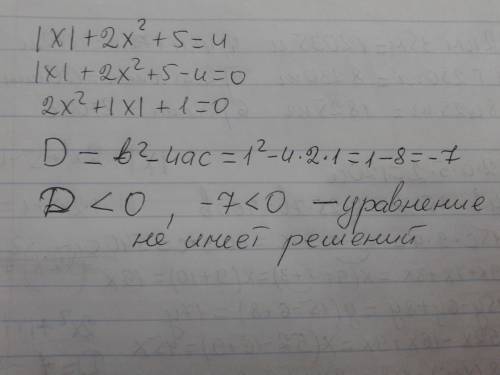 |x|+2x²+5=4
|x|+2x²+5-4=0
2x²+|x|+1=0
D=b²-4ac=1²-4·2·1=1-8=-7
D<0, -7<0 — уравнение
не имеет решений